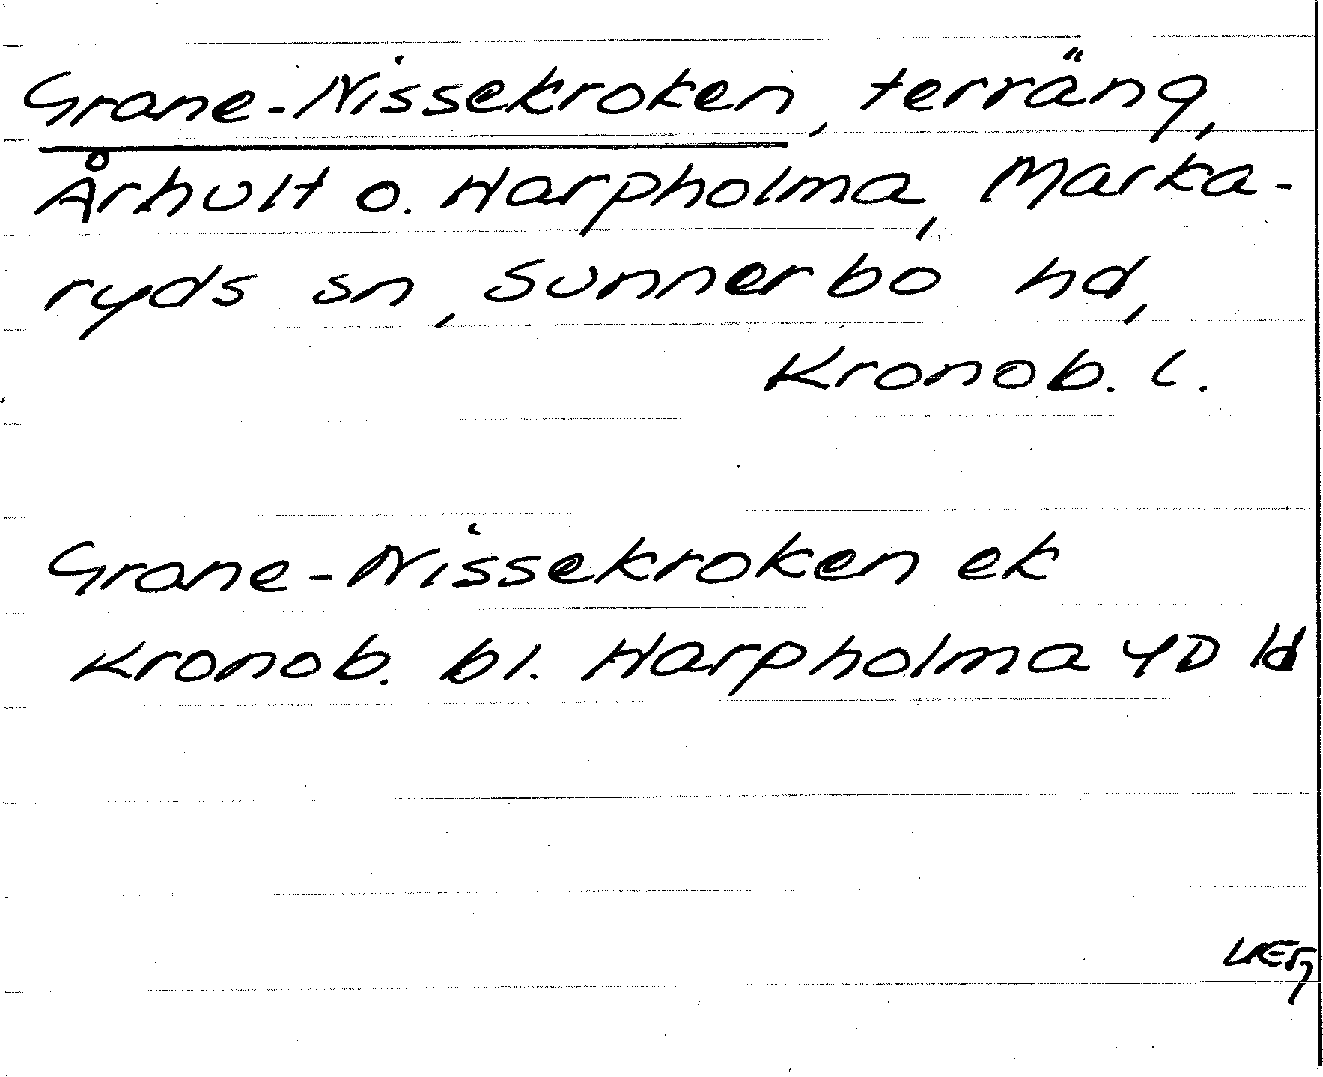 Grane-Nissekroken, terräng,
Århult o. Harpholma, Marka-
ryds sn, Sunnerbo hd,
Kronob. l.
Grane-Nissekroken ek
Kronob. bl. Harpholma 4D ld